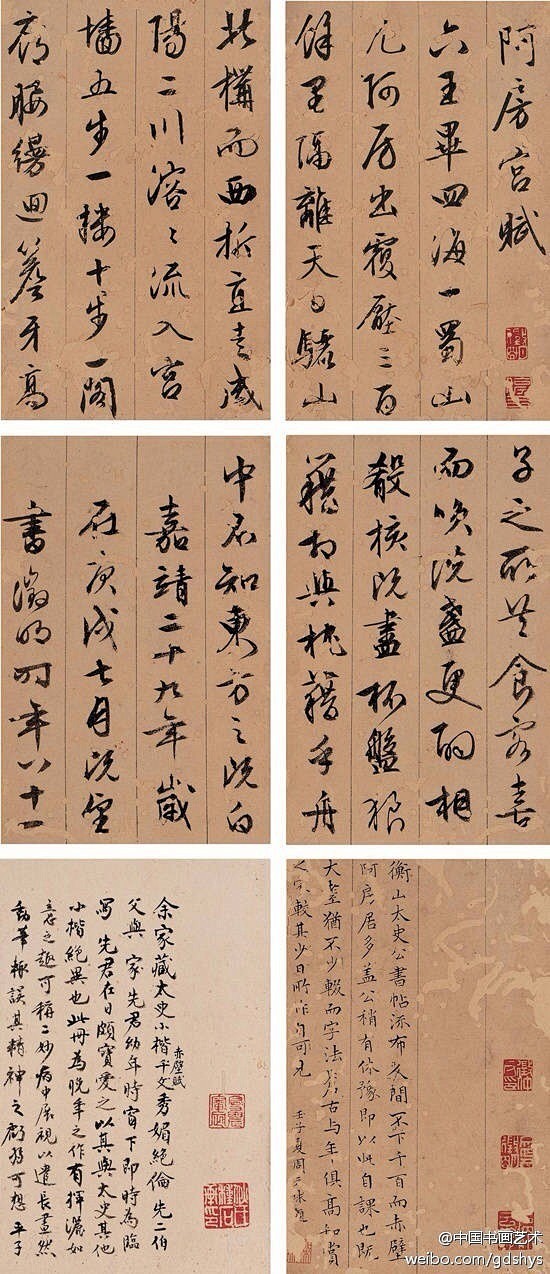 阿房宮賦
六王畢四海一蜀山
兀阿房出覆壓三百
餘里隔離天日驪山
北構而西折直走咸
陽二川溶々流入宮
墻五步一樓十步一閣
廊腰縵迴簷牙高
子之所共食客喜
而笑洗盞更酌相
殽核既盡杯盤狼
籍相與枕藉乎舟
中不知東方之既白
嘉靖二十九年歲
在庚戌七月既望
書徵明時年八十一
衡山太史公書帖流布人間不下千百而赤壁
阿房居多蓋公稍有餘豫即以此自課也既
大耋猶不少輟而字法古与年俱高知賞
之家較其少日所作自可見
壬子夏周天球題
余家藏太史小楷千文秀媚絕倫先二伯
赤壁賦
父與家先君幼年時窗下即時為臨
寫先君在日頗寶愛之以其與太史其他
小楷絕異也此冊為晚年之作有揮灑如
意之趣可稱二妙病中展視以遣長晝然
動筆輒誤其精神之可想平子
@中国书画艺术
weibo.com/gdshys